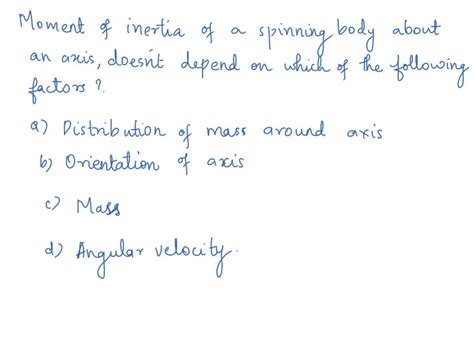 Moment of inertia of a spinning body about
an axis, doesn't depend on which of the following
factors ?
a) Distribution of mass around axis
b) Orientation of axis
c) Mass
d) Angular velocity.